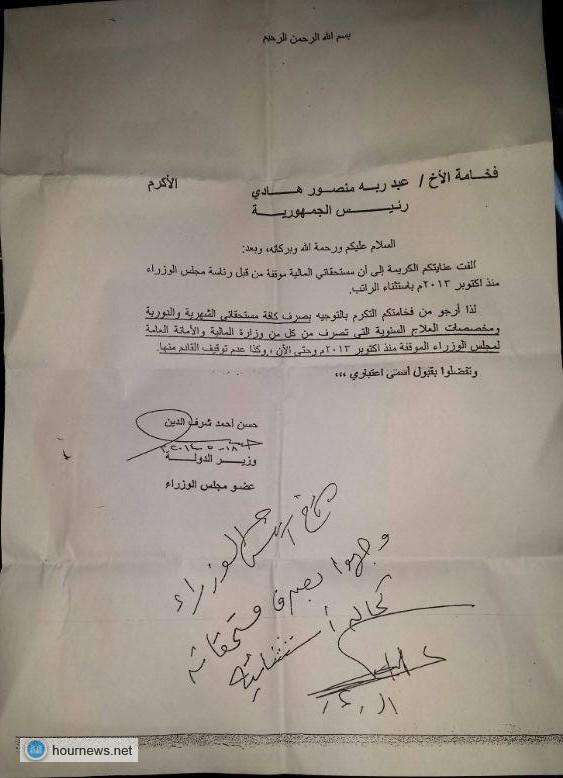 بسم الله الرحمن الرحيم
فخامة الأخ / عبد ربه منصور هادي الأكرم
رئيس الجمهورية
السلام عليكم ورحمة الله وبركاته، وبعد:
ألفت عنايتكم الكريمة إلى أن مستحقاتي المالية موقفة من قبل رئاسة مجلس الوزراء
منذ اكتوبر ٢٠١٣م باستثناء الراتب.
لذا أرجو من فخامتكم التكرم بالتوجيه بصرف كافة مستحقاتي الشهرية والدورية
ومخصصات العلاج السنوية التي تصرف من كل من وزارة المالية والأمانة العامة
لمجلس الوزراء الموقفة منذ اكتوبر ٢٠١٣م وحتى الأن ، وكذا عدم توقيف القادم منها.
وتفضلوا بقبول أسمى اعتباري ،،،
حسن أحمد شرف الدين
وزير الدولة
عضو مجلس الوزراء
الأخ رئيس الوزراء
وجهوا بصرف مستحقاته
كحالة أستثنائية
hournews.net